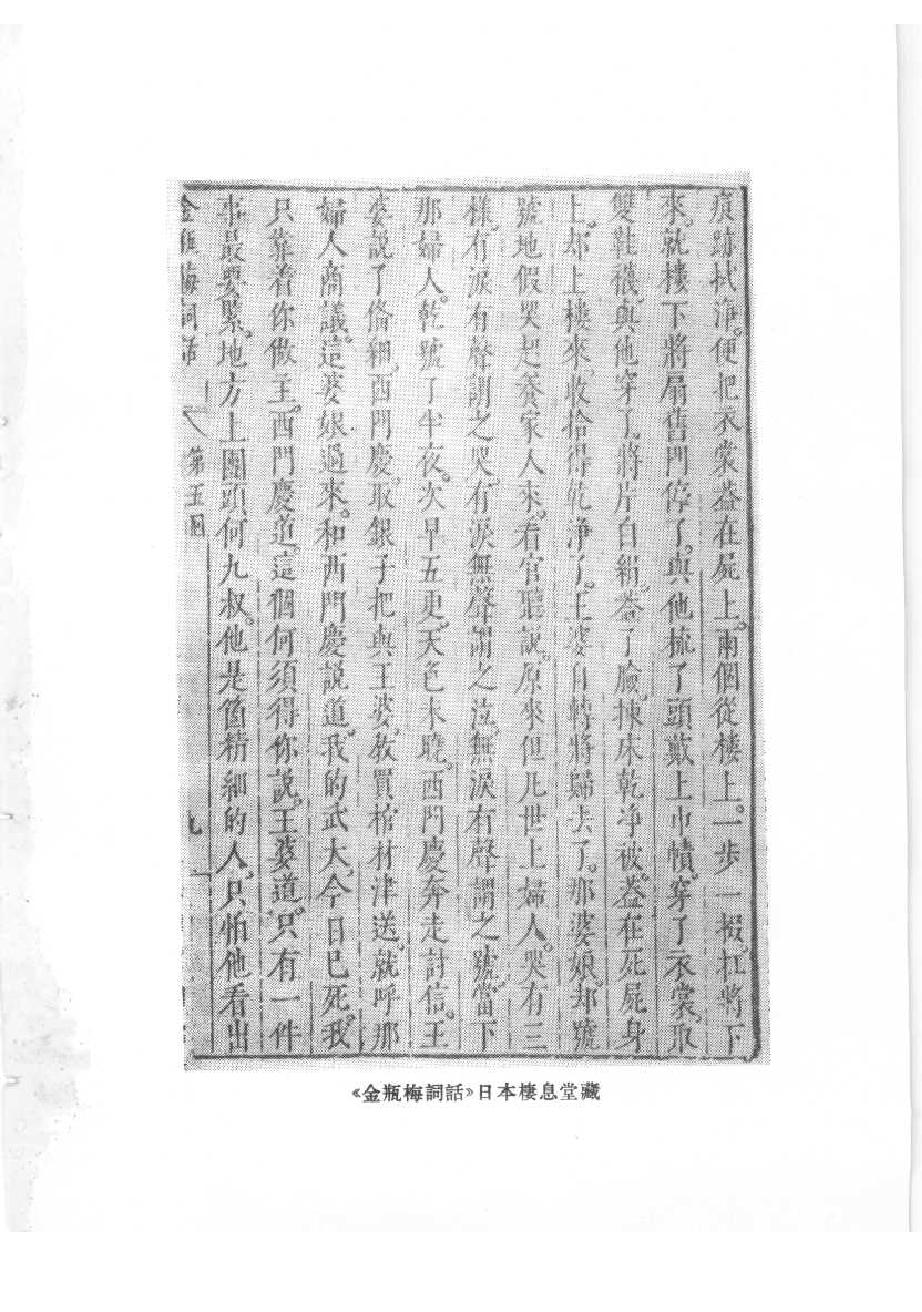 痕跡拭淨。便把衣裳蓋在屍上。兩個從樓上。一步一掇。扛將下
來。就樓下將扇舊門停了。與他梳了頭。戴上巾幘。穿了衣裳。取
雙鞋襪。與他穿了。將片白絹。蓋了臉。揀床乾净被。蓋在死屍身
上。却上樓來。收拾得乾淨了。王婆自轉將歸去了。那婆娘。却號
號地假哭起養家人來。看官聽說。原來但凡世上婦人。哭有三
樣。有淚有聲謂之哭。有淚無聲謂之泣。無淚有聲謂之號。當下
那婦人。乾號了半夜。次早五更。天色未曉。西門慶奔走討信。王
婆說了備細。西門慶。取銀子把與王婆。教買棺材津送。就呼那
婦人商議。這婆娘過來。和西門慶說道。我的武大。今日已死。我
只靠着你做主。西門慶道。這個何須得你說。王婆道。只有一件
事最要緊。地方上團頭何九叔。他是箇精細的人。只怕他看出
金瓶梅詞話 第五回 九
《金瓶梅詞話》日本棲息堂藏